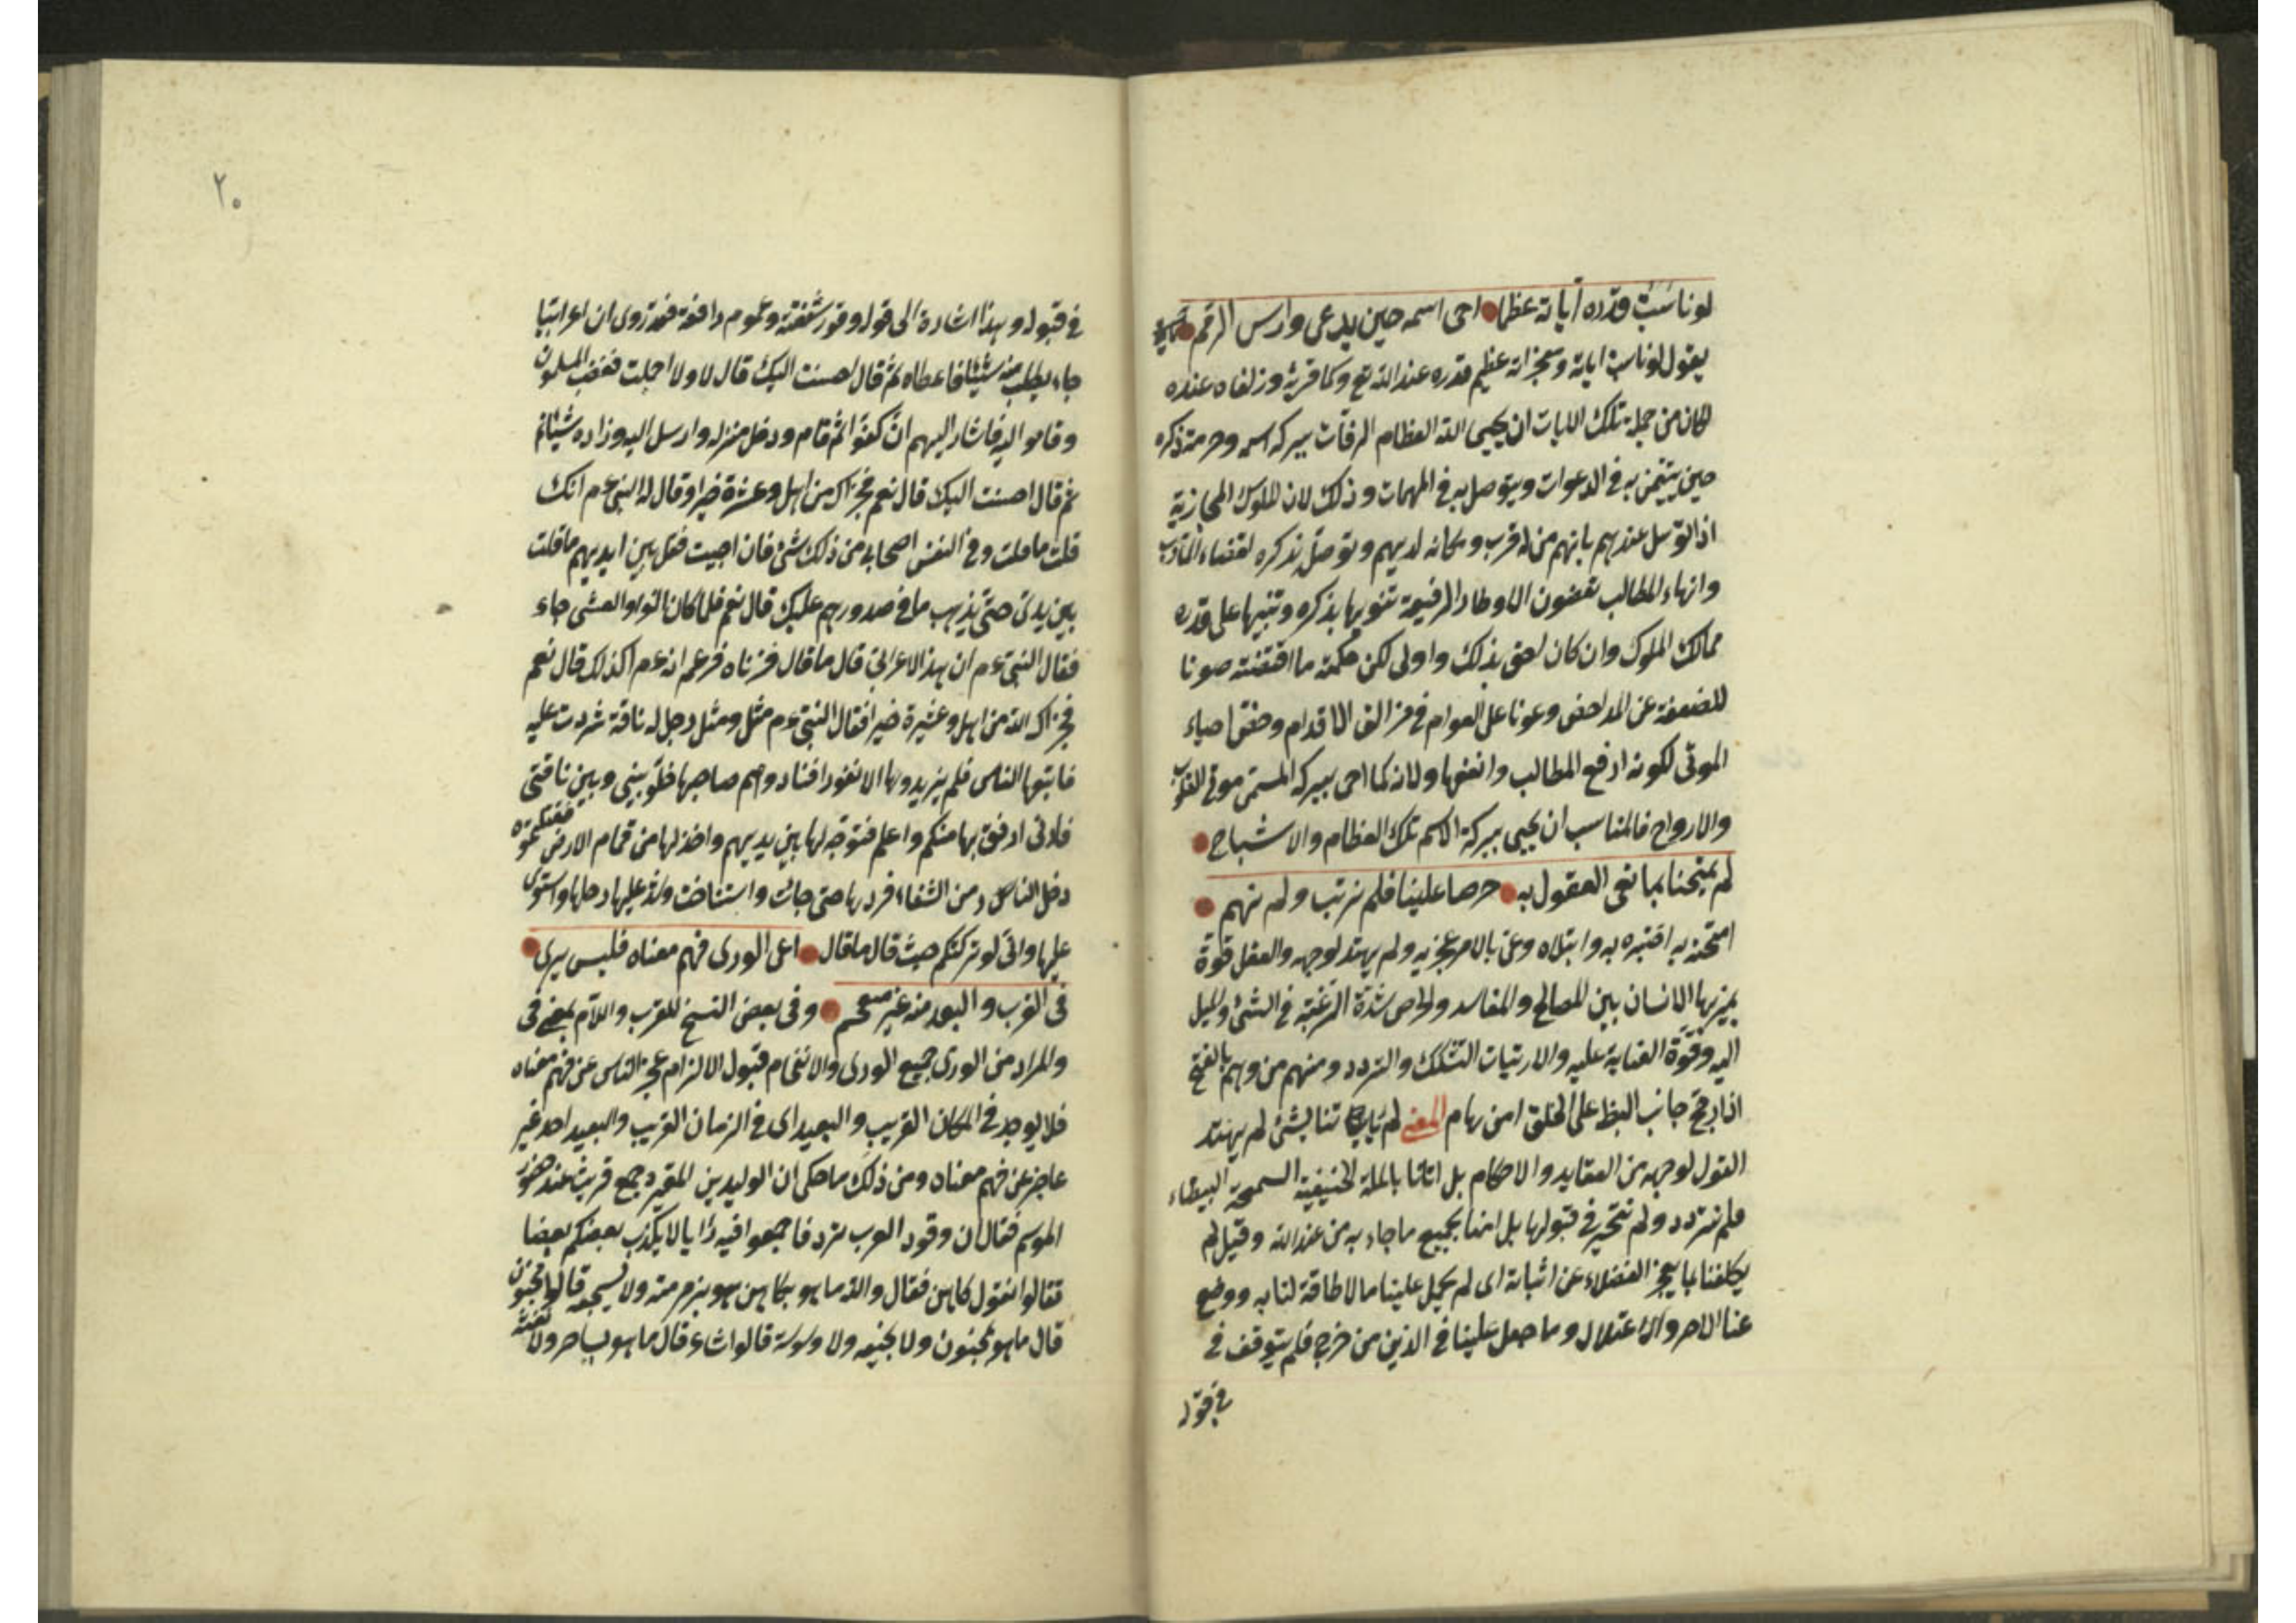 لو ناسَبَتْ قدره آياته عظما احى اسمه حين يدعى دارس الرمم
يقول لو ناسب اياته ومعجزاته عظيم قدره عند الله تع وكما قربه وزلفاه عنده
لكان من جملة تلك الايات ان يحيى الله العظام الرفات ببركة اسمه وحرمة ذكره
حين يتيمن به في الدعوات ويتوصل به في المهمات وذلك لان الملوك المجازية
اذا توسل عندهم بانهم من له قرب ومكانه لديهم وتوصل بذكره لقضاء المآرب
وانهاء المطالب يقضون الاوطار الرفيعة تنويها بذكره وتنبيها على قدره
ممالك الملوك وان كان احق بذلك واولى لكن حكمته ما اقتضته صونا
للضعفة عن المداحض وعونا على العوام في مزالق الاقدام وخص احياء
الموتى لكونه ارفع المطالب وانفعها ولانه كما احى ببركة المسمى موتى القلوب
والارواح فالمناسب ان يحيى ببركة الاسم تلك العظام والاشباح
لم يمتحنا بما تعى العقول به حرصا علينا فلم نرتب ولم نهم
امتحنه به اختبره به وابتلاه وعى بالامر عجز به ولم يهتد لوجهه والعقل قوة
يميز بها الانسان بين المصالح والمفاسد والحرص شدة الرغبة في الشئ والميل
اليه وقوة العناية عليه والارتيات التشكك والتردد ومنهم من وهم بالفتح
اذا رجح جانب الخلق امن رهام المعنى لم بشئ لم يهتد
العقول لوجهه من العقايد والاحكام بل اتانا بالملة الحنيفية السمحة البيضاء
فلم نتردد ولم نتحير في قبولها بل امنا بجميع ما جاء به من عند الله وقيل لم
يكلفنا بما يعجز الفضلاء عن اثباته اى لم يحمل علينا ما لا طاقة لنا به ووضع
عنا الاصر والاعتلال وما جعل علينا في الدين من حرج فلم يتوقف في
في قبوله
٢٠
في قبوله وبهذا اشارة الى قوله وفور شفقته وعموم رافته فقد روى ان اعرابيا
جاء يطلب منه شيئا فاعطاه ثم قال احسنت اليك قال لا ولا اجملت فغضب المسلمون
وقاموا اليه فاشار اليهم ان كفوا ثم قام ودخل منزله وارسل اليه وزاده شيئا
ثم قال احسنت اليك قال نعم فجزاك من اهل وعشرة خيرا وقال له النبي ءم انك
قلت ما قلت وفي انفس اصحابي من ذلك شئ فان احببت فقل بين ايديهم ما قلت
بين يدى حتى يذهب ما في صدورهم عليك قال نعم فلما كان الغد او العشى جاء
فقال النبي ءم ان هذا الاعرابي قال ما قال فزدناه فزعم انه ءم اكذلك قال نعم
فجزاك الله من اهل وعشيرة خيرا فقال النبي ءم مثل ومثل رجل له ناقة شردت عليه
فاتبعها الناس فلم يزيدوها الا نفورا فناداهم صاحبها خلو بيني وبين ناقتي
فانى ارفق بها منكم واعلم فتوجه لها بين يديهم واخذ لها من قمام الارض
دخل النار ومن الشفاء فردها حتى جاءت واستناخت وشد عليها رحلها واستوى
عليها وانى لو تركتكم حيث قال ما قال اعى الورى فهم معناه فليس يرى
في القرب والبعد منه غير منفحم وفي بعض النسخ للقرب واللام بمعنى في
والمراد من الورى جميع الورى والانفحام قبول الالزام عجز الناس عن فهم معناه
فلا يوجد في المكان القريب والبعيد اى في الزمان القريب والبعيد احد غير
عاجز عن فهم معناه ومن ذلك ما حكى ان الوليد بن المغيرة جمع قريش عند حضور
الموسم فقال ان وفود العرب ترد فاجمعوا فيه رايا لا يكذب بعضكم بعضا
فقالوا نقول كاهن فقال والله ما هو بكاهن هو بزمزمته ولا سجعه قالوا مجنون
قال ما هو بمجنون ولا بخنقه ولا وسوسة قالوا شاعر قال ما هو بساحر ولا نفثه